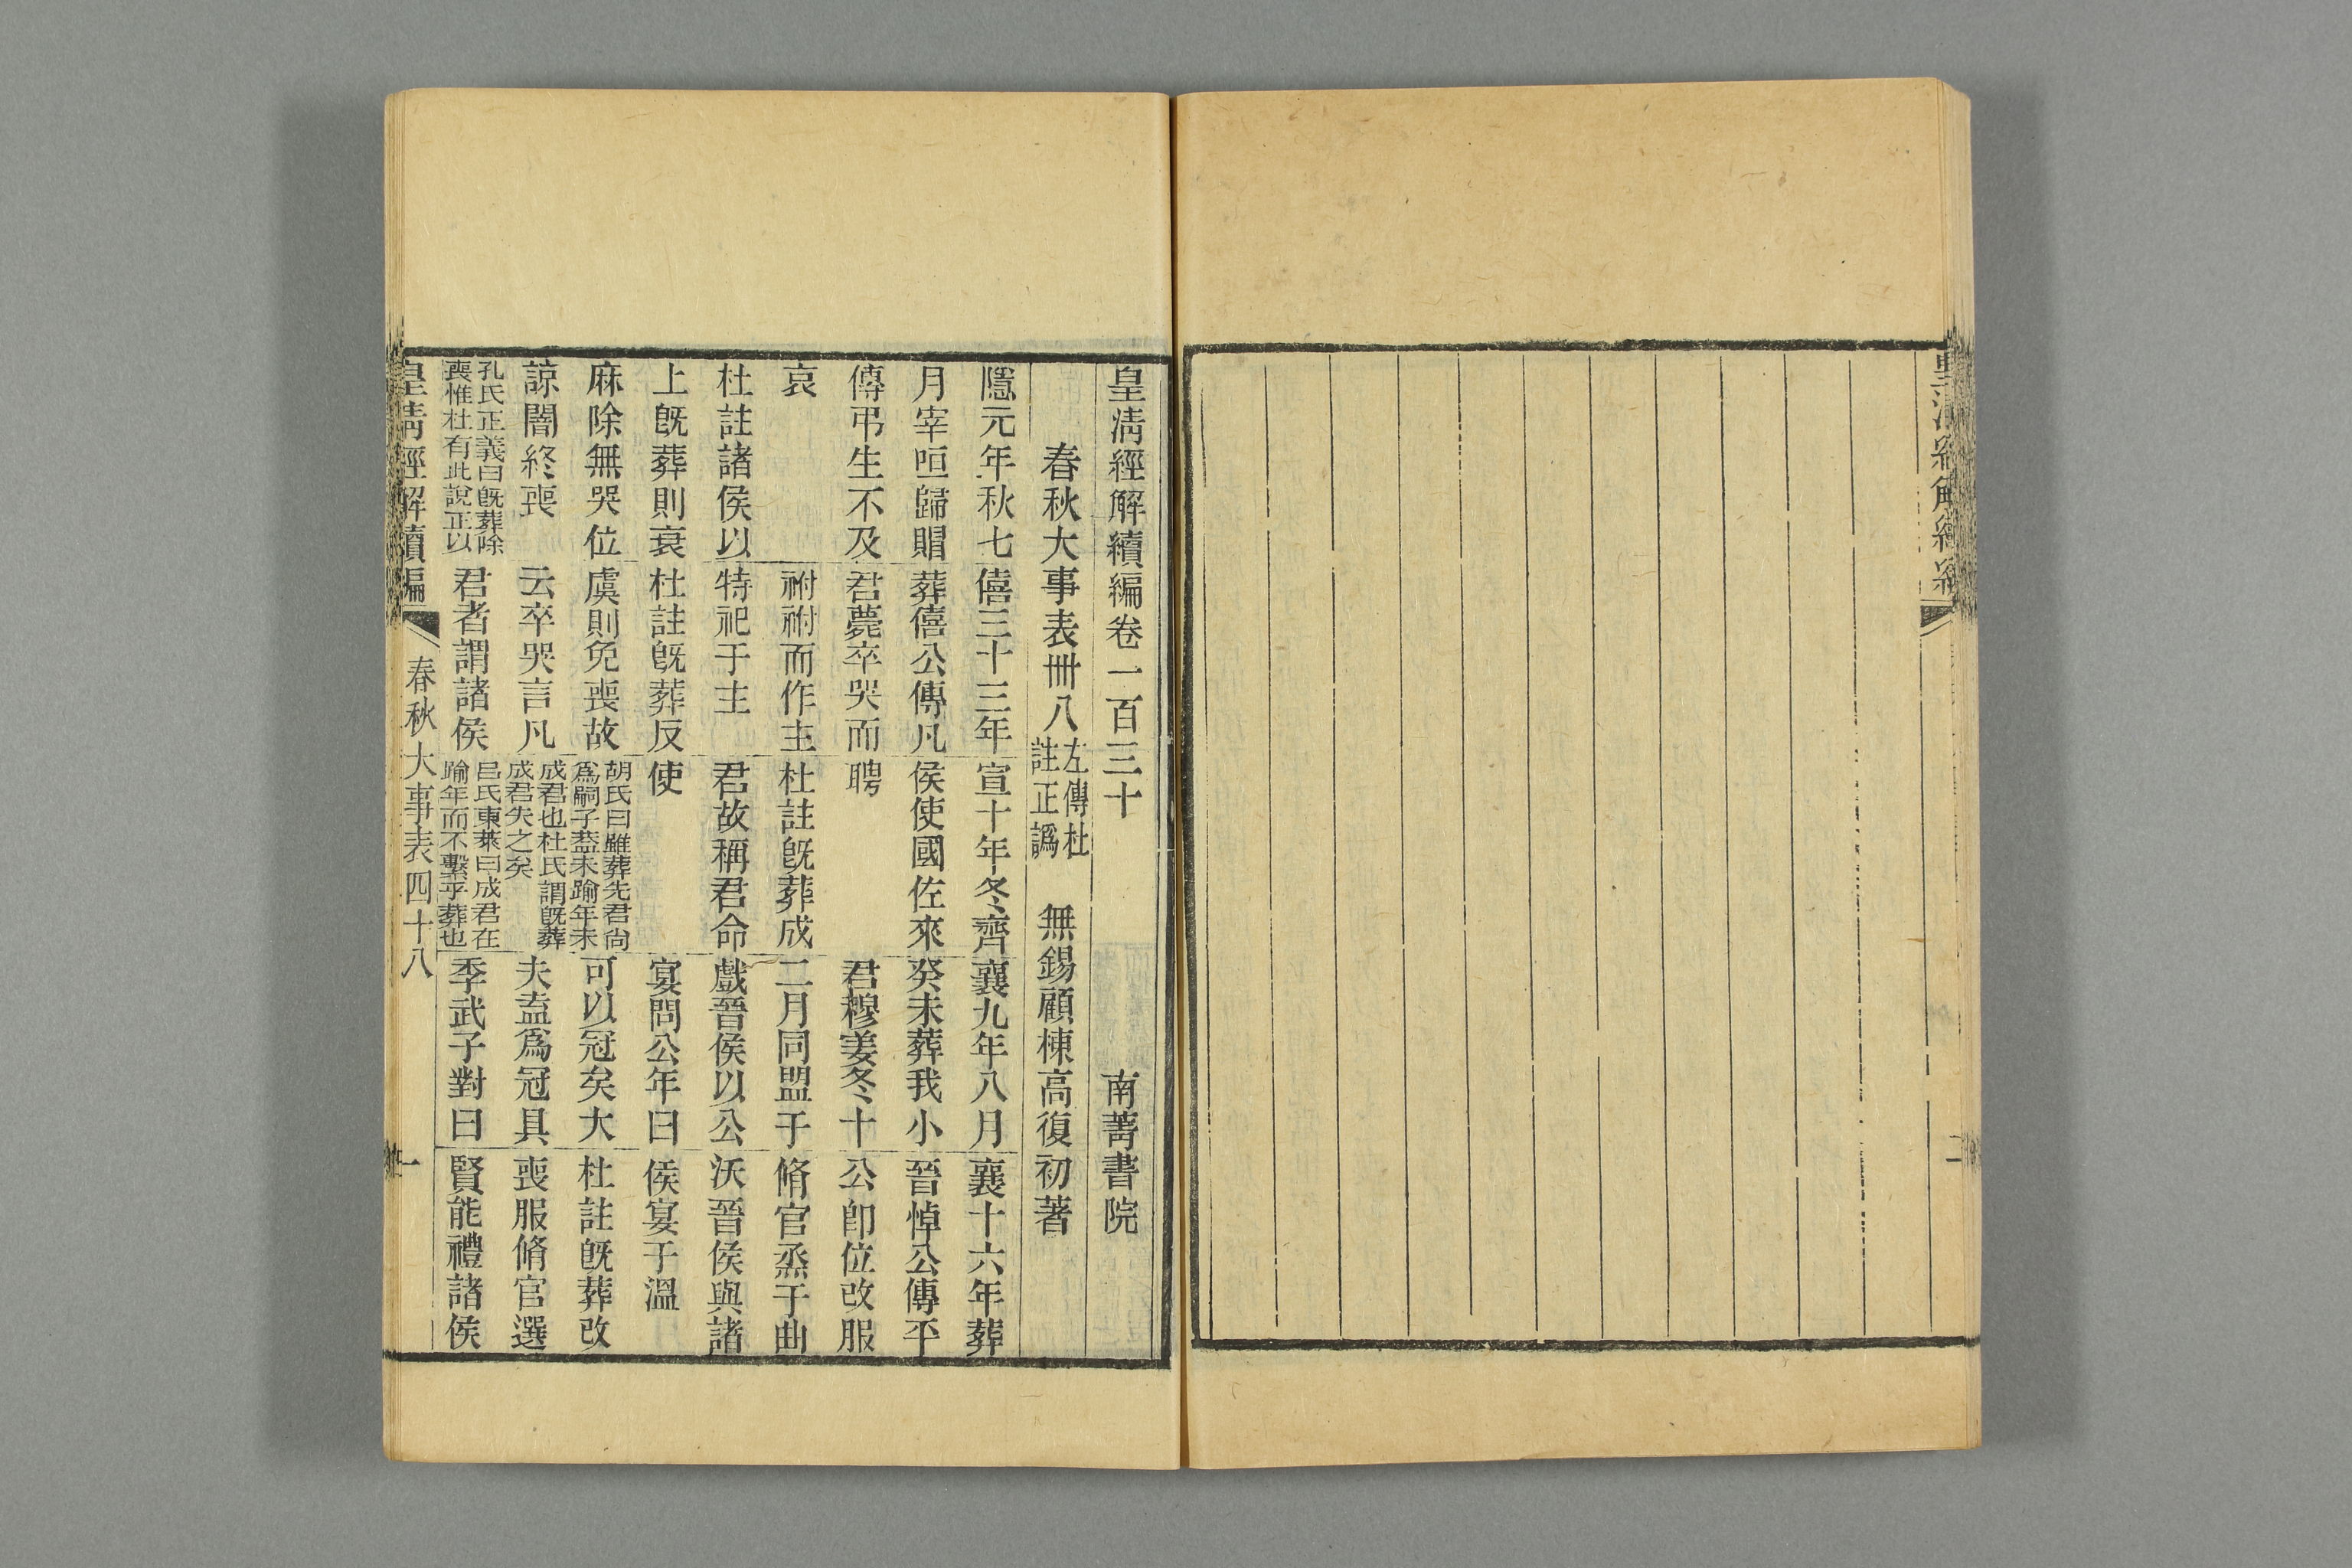 皇清經解續編
二
皇清經解續編卷一百三十
南菁書院
春秋大事表卌八
左傳杜
註正譌
無錫顧棟高復初著
隱元年秋七
月宰咺歸賵
傳弔生不及
哀
杜註諸侯以
上旣葬則衰
麻除無哭位
諒闇終喪
孔氏正義曰旣葬除
喪惟杜有此說正以
僖三十三年
葬僖公傳凡
君薨卒哭而
祔祔而作主
特祀于主
杜註旣葬反
虞則免喪故
云卒哭言凡
君者謂諸侯
宣十年冬齊
侯使國佐來
聘
杜註旣葬成
君故稱君命
使
胡氏曰雖葬先君尙
爲嗣子蓋未踰年未
成君也杜氏謂旣葬
成君失之矣
呂氏東萊曰成君在
踰年而不繫乎葬也
襄九年八月
癸未葬我小
君穆姜冬十
二月同盟于
戲晉侯以公
宴問公年曰
可以冠矣大
夫盍爲冠具
季武子對曰
襄十六年葬
晉悼公傳平
公卽位改服
脩官烝于曲
沃晉侯與諸
侯宴于溫
杜註旣葬改
喪服脩官選
賢能禮諸侯
皇淸經解續編
春秋大事表四十八
一